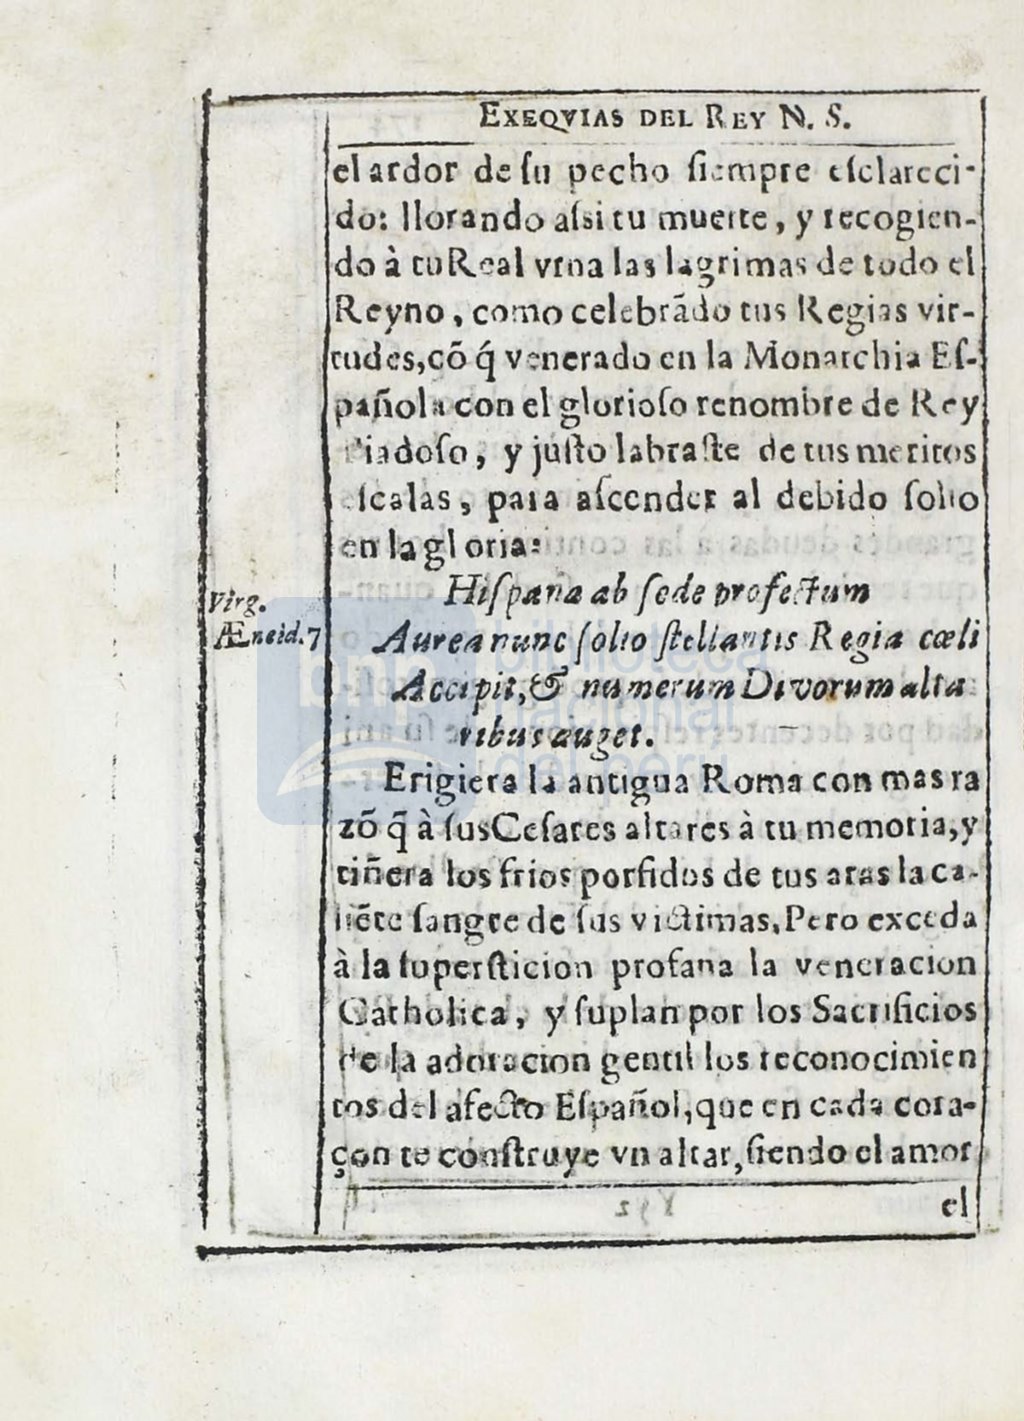 EXEQVIAS DEL REY N. S.
el ardor de ſu pecho ſiempre eſclareci-
do: llorando aſsi tu muerte, y recogien-
do à tu Real vrna las lagrimas de todo el
Reyno, como celebrãdo tus Regias vir-
tudes, cõ q́ venerado en la Monarchia Eſ-
pañola con el glorioſo renombre de Rey
Piadoſo, y juſto labraſte de tus meritos
eſcalas, para aſcender al debido ſolio
en la gloria:
Hiſpana ab ſede profectum
Virg.
Æneid. 7
Aurea nunc ſolio ſtellantis Regia cœli
Accipit, & numerum Divorum alta
ribus auget.
Erigiera la antigua Roma con mas ra
zõ q̃ à ſus Ceſares altares à tu memoria, y
tiñera los frios porfidos de tus aras la ca-
liẽte ſangre de ſus victimas. Pero exceda
à la ſuperſticion profana la veneracion
Catholica, y ſuplan por los Sacrificios
de la adoracion gentil los reconocimien
tos del afecto Eſpañol, que en cada cora-
çon te conſtruye vn altar, ſiendo el amor
el
bnp biblioteca
nacional
del perú